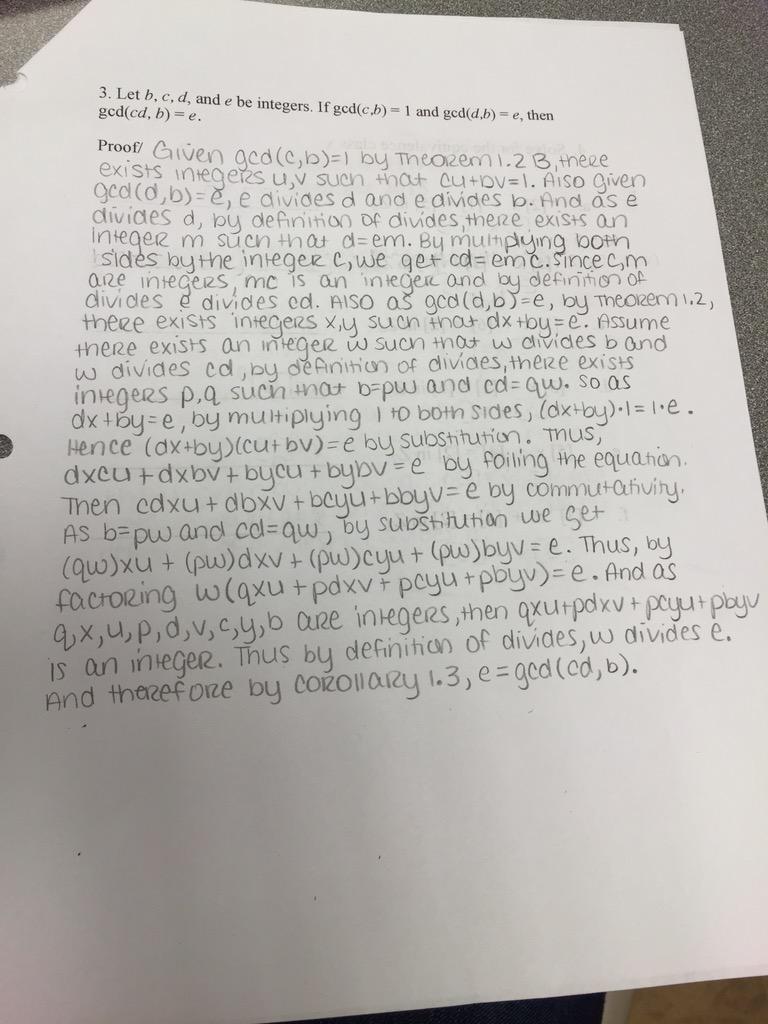 3. Let b, c, d, and e be integers. If gcd(c,b) = 1 and gcd(d,b) = e, then
gcd(cd, b) = e.
Proof/ Given gcd(c,b)=1 by Theorem 1.2 B, there
exists integers u,v such that cu+bv=1. Also given
gcd(d,b)=e, e divides d and e divides b. And as e
divides d, by definition of divides, there exists an
integer m such that d=em. By multiplying both
sides by the integer c, we get cd=emc. Since c,m
are integers, mc is an integer and by definition of
divides e divides cd. Also as gcd(d,b)=e, by Theorem 1.2,
there exists integers x,y such that dx+by=e. Assume
there exists an integer w such that w divides b and
w divides cd, by definition of divides, there exists
integers p,q such that b=pw and cd=qw. So as
dx+by=e, by multiplying 1 to both sides, (dx+by)·1=1·e.
Hence (dx+by)(cu+bv)=e by substitution. Thus,
dxcu+dxbv+bycu+bybv=e by foiling the equation.
Then cdxu+dbxv+bcyu+bbyv=e by commutativity.
As b=pw and cd=qw, by substitution we get
(qw)xu + (pw)dxv + (pw)cyu + (pw)byv = e. Thus, by
factoring w(qxu+pdxv+pcyu+pbyv)=e. And as
q,x,u,p,d,v,c,y,b are integers, then qxu+pdxv+pcyu+pbyv
is an integer. Thus by definition of divides, w divides e.
And therefore by corollary 1.3, e=gcd(cd,b).